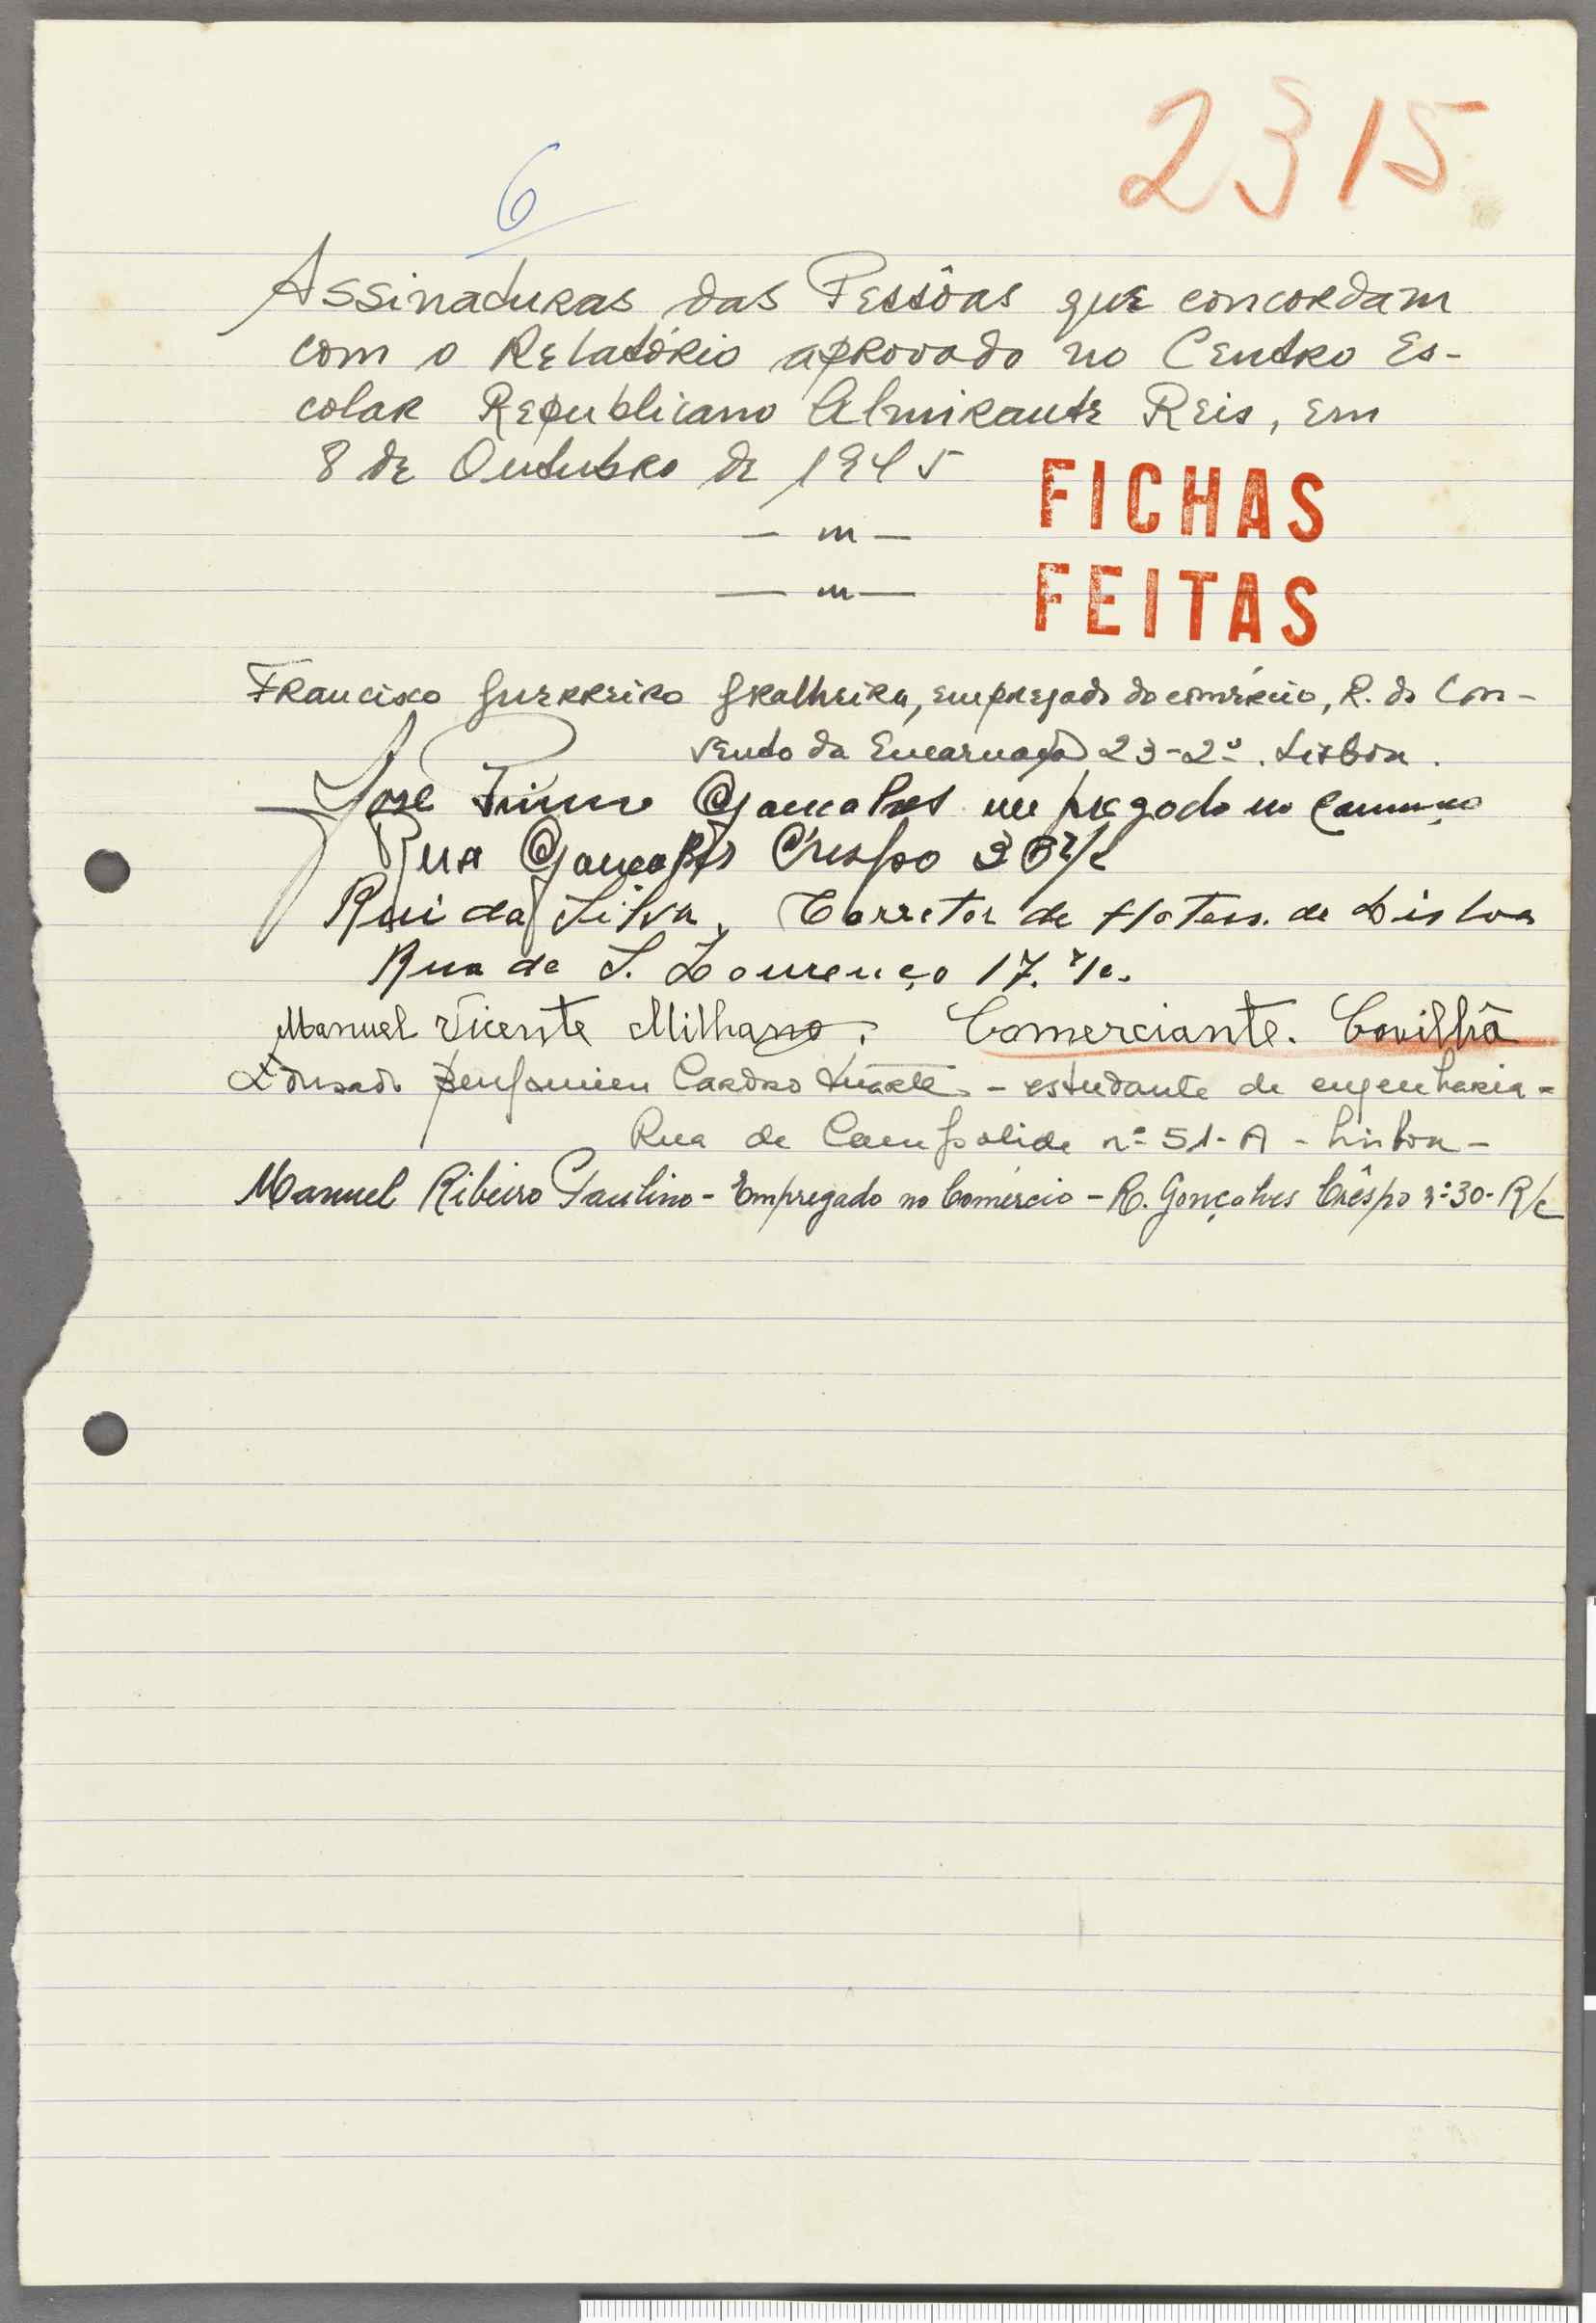 2315
6
Assinaturas das Pessôas que concordam
com o Relatório aprovado no Centro Es-
colar Republicano Almirante Reis, em
8 de Outubro de 1945
FICHAS
FEITAS
Francisco Guerreiro Gralheira, empregado do comércio, R. do Con-
vento da Encarnação 23-2º. Lisboa.
José Primo Gonçalves empregado no Comerço
Rua Gonçalves Crespo 30 r/c
Rui da Silva, Corretor de Hoteis. de Lisboa
Rua de S. Lourenço 17. r/c.
Manuel Vicente Milhano. Comerciante. Covilhã
Eduardo Benjamien Cardoso Duarte - estudante de engenharia -
Rua de Campolide nº 51-A - Lisboa -
Manuel Ribeiro Paulino - Empregado no Comércio - R. Gonçalves Crêspo nº 30 - R/c